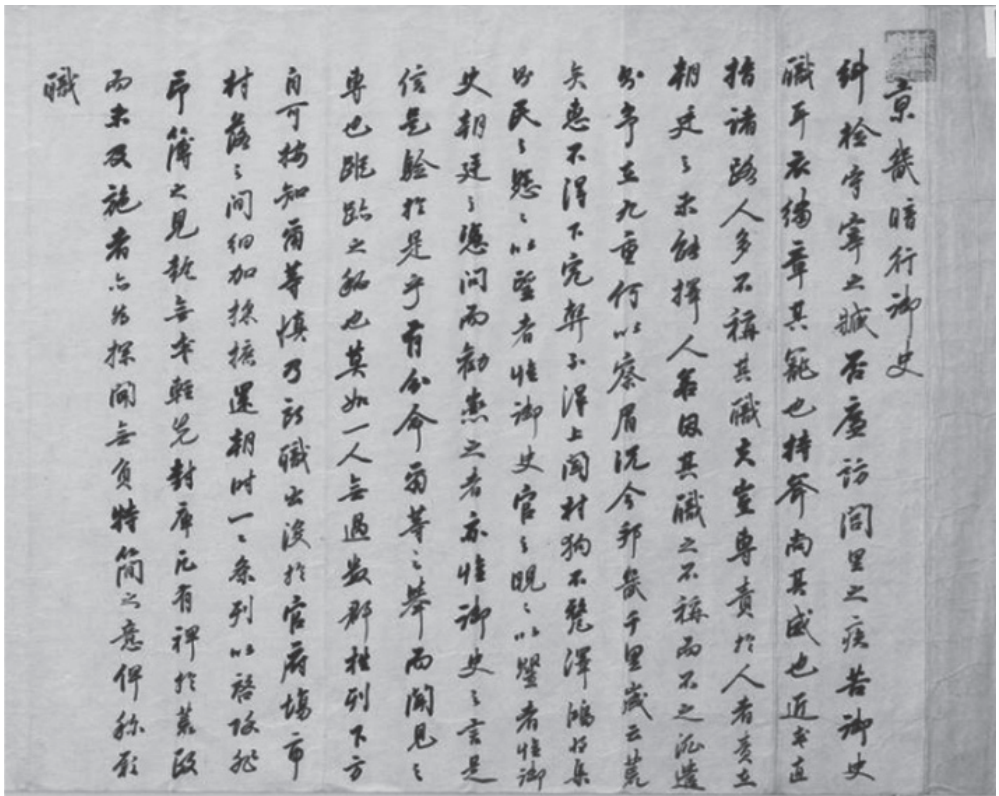 京畿暗行御史
糾检守宰之臧否廉訪閭里之疾苦御史
職耳衣繡章其寵也持斧尚其威也近声直
指諸路人多不稱其職夫豈專責於人者責在
朝廷之未能擇人名因其職之不稱而不之派遣
於予在九重何以察眉況今邦畿千里歲云荒
矣惠不得下究弊不得上聞村狗不驚澤鴻將集
民之懸之以望者惟御史官之睍之以鑒者惟御
史朝廷之憑問而勸懲之者亦惟御史之言是
信是驗於是乎有分命爾等之舉而聞見之
專也蹤跡之秘也莫如一人無過數郡柱列下方
自可按知爾等慎乃部職出沒於官府場市
村落之間細加採摭還朝時一一条列以啓除非
昂簿之見執無或輕先封庫凡有裨於荒政
而未及施者亦為採聞無負特簡之意俾称厥
職